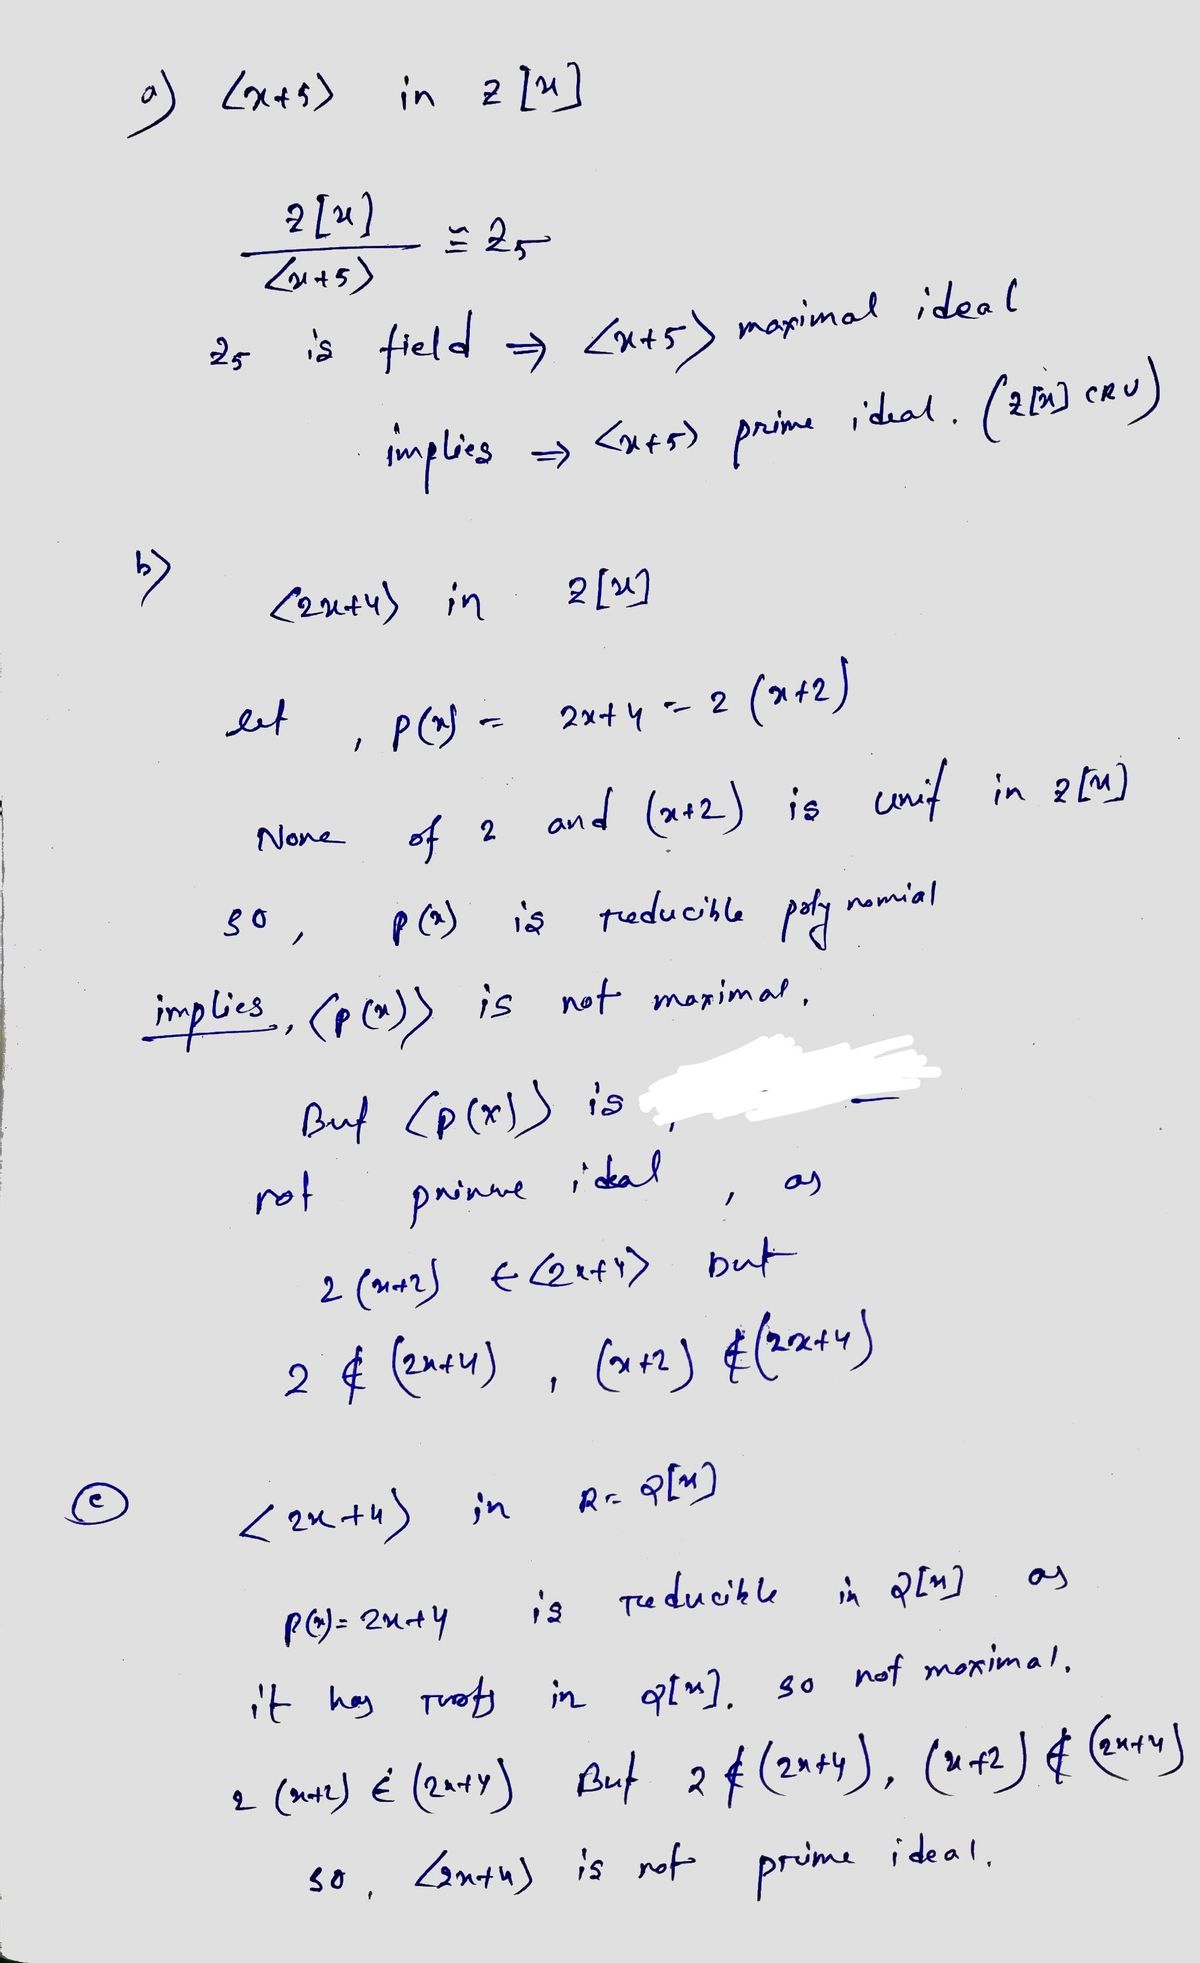 a) <x+5> in Z[x]
Z[x] / <x+5> ≅ Z5
Z5 is field ⇒ <x+5> maximal ideal
implies ⇒ <x+5> prime ideal. (Z[x] CRU)
b) <2x+4> in Z[x]
let, p(x) = 2x+4 = 2(x+2)
None of 2 and (x+2) is unit in Z[x]
so, p(x) is reducible polynomial
implies, <p(x)> is not maximal.
But <p(x)> is
not prime ideal, as
2(x+2) ∈ <2x+4> but
2 ∉ (2x+4), (x+2) ∉ (2x+4)
c <2x+4> in R = Q[x]
p(x) = 2x+4 is reducible in Q[x] as
it has roots in Q[x]. so not maximal.
2(x+2) ∈ (2x+4) But 2 ∉ (2x+4), (x+2) ∉ (2x+4)
so, <2x+4> is not prime ideal.